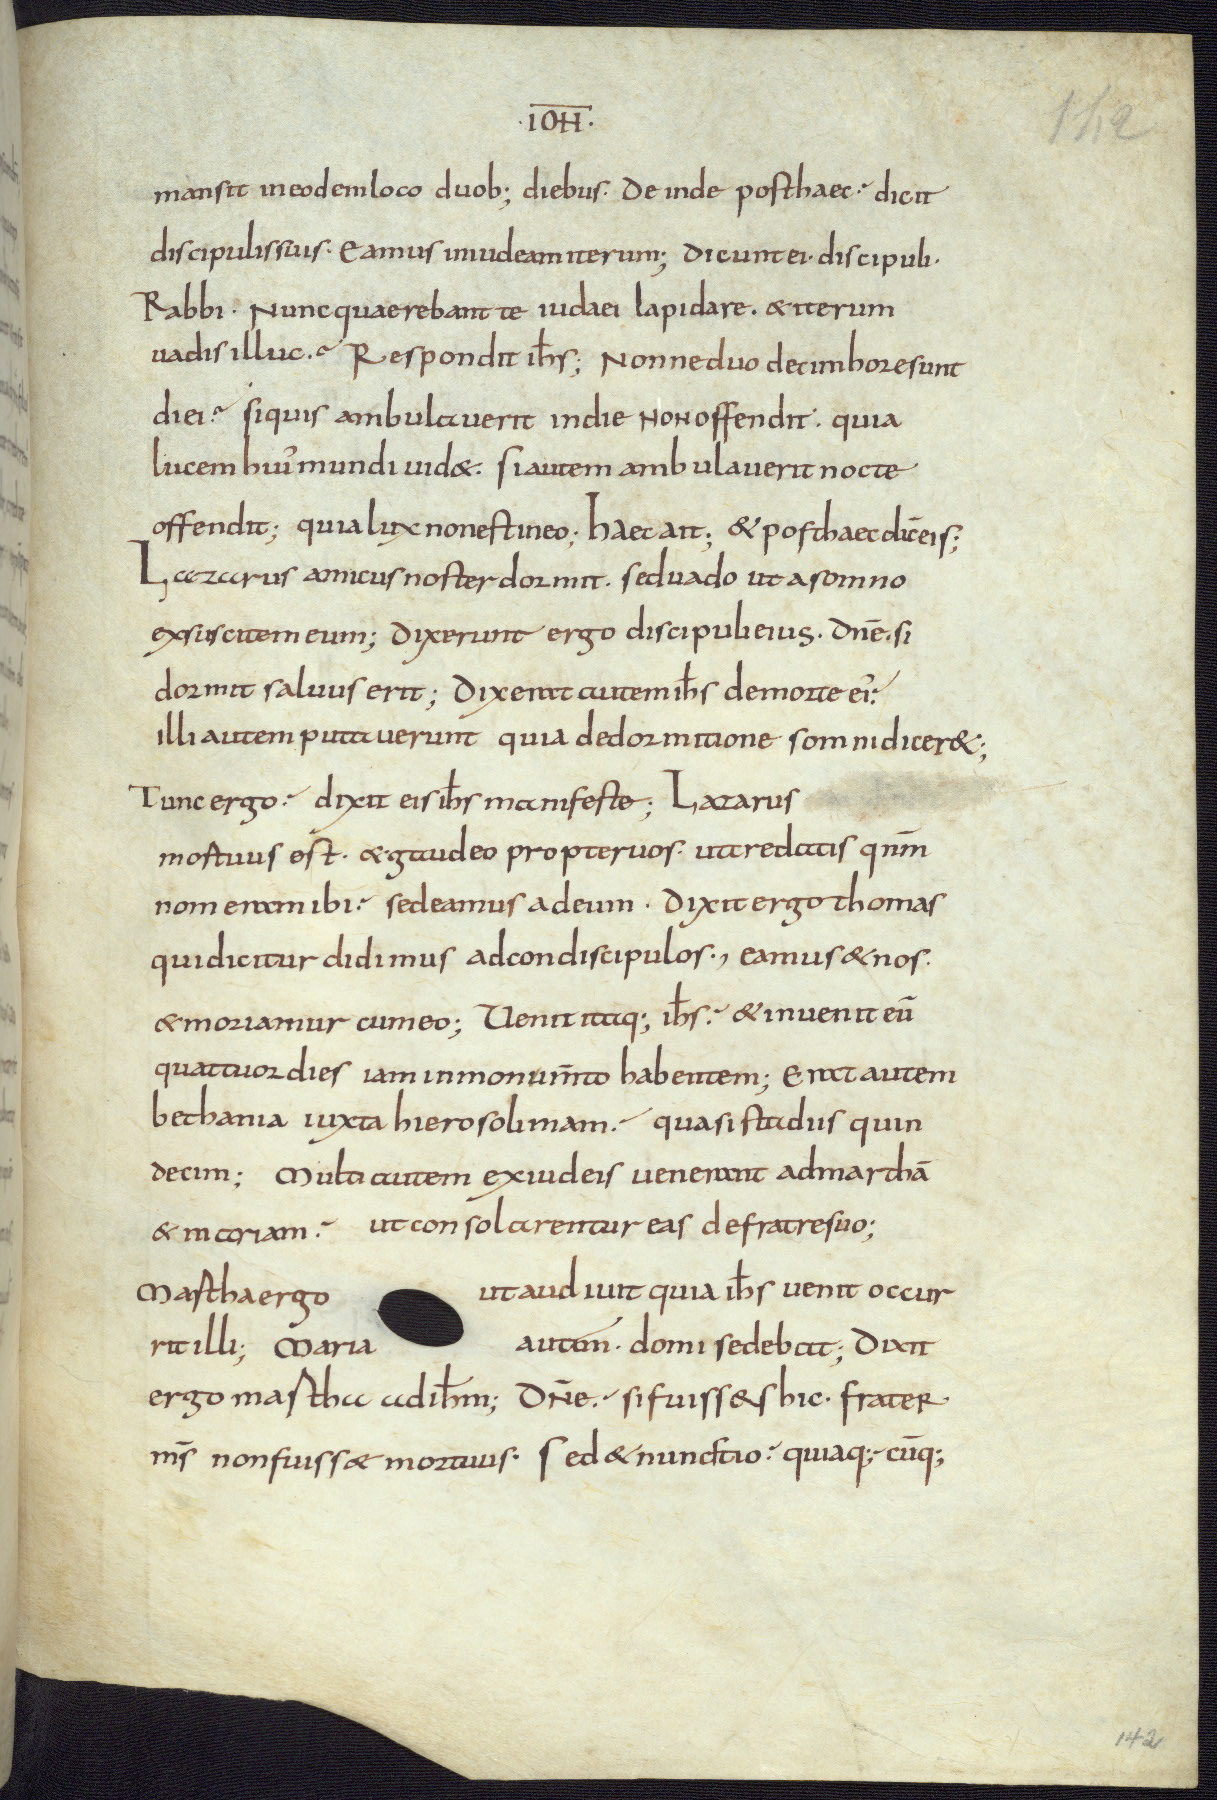 142
·IOH̅·
mansit in eodem loco duob; diebus. Deinde post haec. dicit
discipulis suis. Eamus in iudeam iterum; Dicunt ei. discipuli.
Rabbi. Nunc quaerebant te iudaei lapidare. & iterum
uadis illuc. Respondit ihs; Nonne duodecim hore sunt
diei. si quis ambulauerit in die non offendit. quia
lucem hui' mundi uid&. Si autem ambulauerit nocte
offendit; quia lux non est in eo; haec ait; & post haec dic̅ eis;
Lazarus amicus noster dormit. sed uado ut a somno
exsuscitem eum; Dixerunt ergo discipuli eius. Dn̅e. si
dormit saluus erit; Dixerat autem ihs de morte ei';
illi autem putauerunt quia de dormitione somni dicer&;
Tunc ergo. dixit eis ihs manifeste; Lazarus
mortuus est. & gaudeo propter uos. ut credatis qnm̅
non eram ibi. sed eamus ad eum. Dixit ergo thomas
qui dicitur didimus ad condiscipulos., eamus & nos.
& moriamur cum eo; Uenit itaq; ihs. & inuenit eu̅
quattuor dies iam in monum̅to habentem; Erat autem
bethania iuxta hierosolimam. quasi stadiis quin
decim; Multi autem ex iudeis uenerant ad martha̅
& mariam. ut consolarentur eas de fratre suo;
Martha ergo ut audiuit quia ihs uenit occur
rit illi; Maria autem. domi sedebat; Dixit
ergo martha ad ihm; Dn̅e. si fuiss&s hic. frater
ms̅ non fuiss& mortuus. Sed & nunc scio. quia q; cu̅q;
142